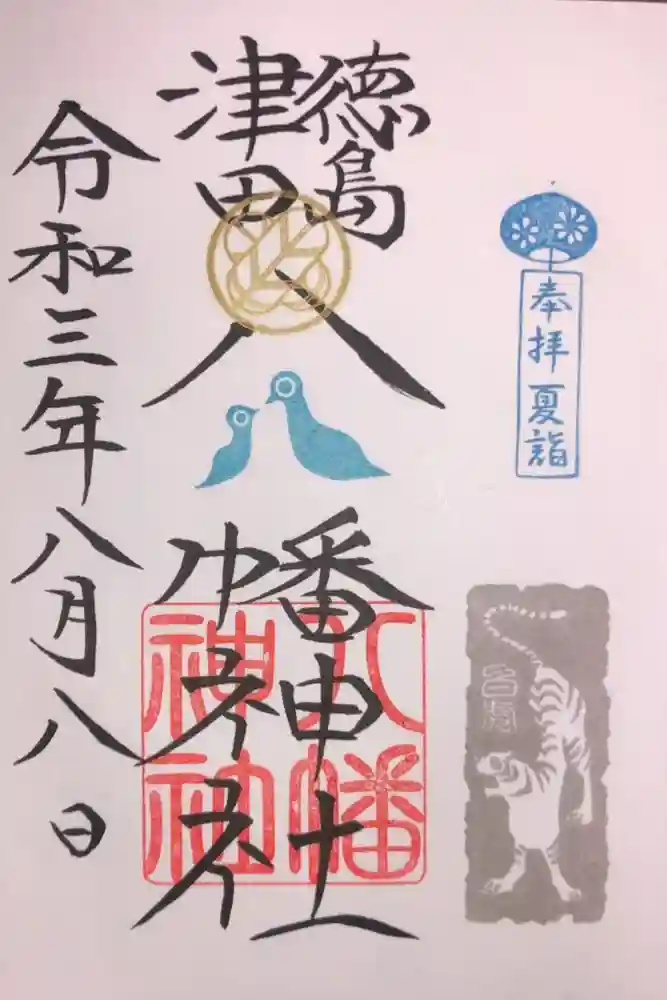 奉拝 夏詣
白虎
徳島
津田
八幡神社
八幡
神社
令和三年八月八日